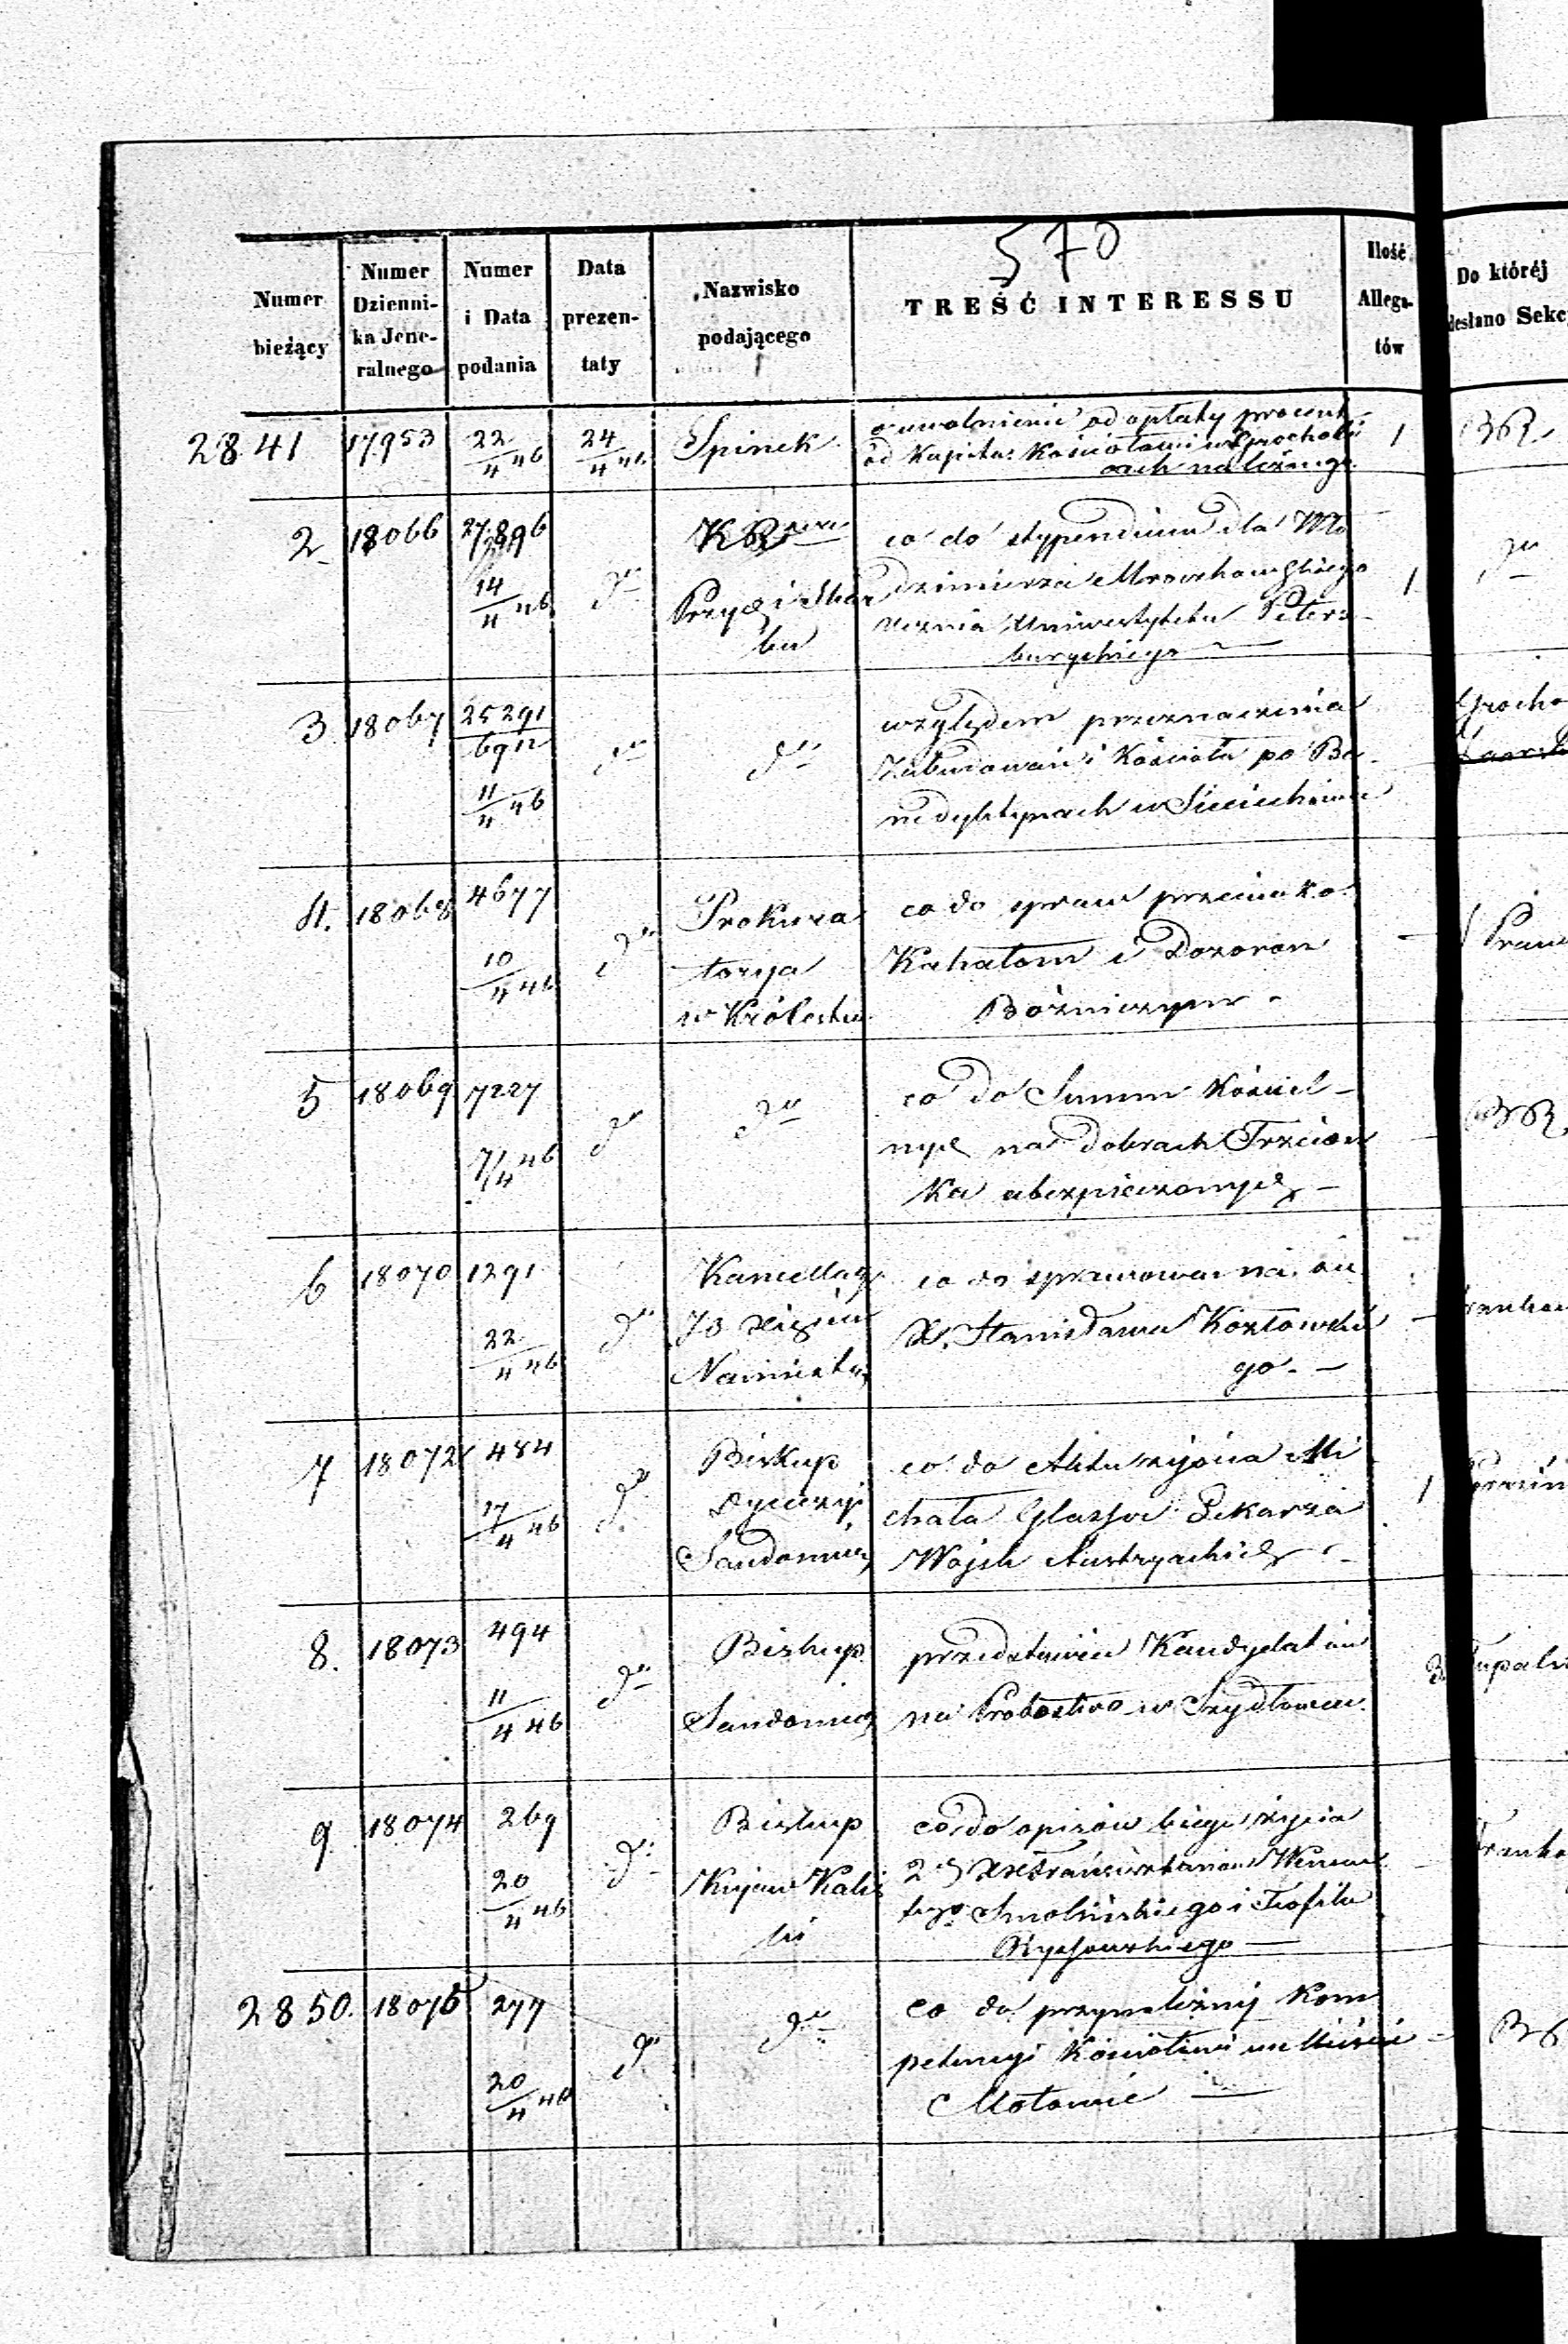 570
Numer bieżący | Numer Dzienni-ka Jene-ralnego | Numer i Data podania | Data prezen-taty | Nazwisko podającego | TREŚĆ INTERESSU | Ilość Allega-tów | Do któréj
desłano Sekc
2841 | 17953 | 22/4 46 | 24/4 46 | Spinek | o uwolnienie od opłaty procent
od Kapitu: Kościołowi w Grocholi
cach należnego | 1 | BR
2 | 18066 | 27896
14/4 46 | do | KR
Przych i Skar
bu | co do stypendium dla Wło
dzimierza Mroczkowskiego
ucznia Uniwersytetu Peters-
burgskiego | 1 | do
3 | 18067 | 25291/6912
11/4 46 | do | do | względem przeznaczenia
Zabudowań i Kościoła po Be-
nedyktynach w Sieciechowie | Grocho
4. | 18068 | 4677
10/4 46 | do | Prokura
torya
w Królestw | co do spraw przeciwko
Kahałom i Dozorom
Bóżniczym - | Praw
5 | 18069 | 7227
7/4 46 | do | do | co do Summ Kościel-
nych na dobrach Trzcian
ka ubezpieczonych - | BR
6 | 18070 | 1291
22/4 46 | do | Kancellary
JO Xięcia
Namiestn | co do sprawowania się
X. Stanisława Kozłowskie
go. -
7 | 18072 | 484
17/4 46 | do | Biskup
Dyecezyi
Sandomir | co do Aktu zejścia Mi
chała Glazsor Lekarza
Wojsk Austryackich | 1
8. | 18073 | 494
11/4 46 | do | Biskup
Sandomir | przedstawia Kandydatów
na Probostwo w Szydłowcu | 3
9 | 18074 | 269
20/4 46 | do | Biskup
Kujaw Kalis
ki | co do opisów biegu życia
2ch XX Franciszkanów Wincen
tego Smolińskiego i Teofila
Rychowskiego
2850. | 18075 | 277
20/4 46 | do | do | co do przynależnej Kom
petencyi Kościołowi we Mieście
Mstowie